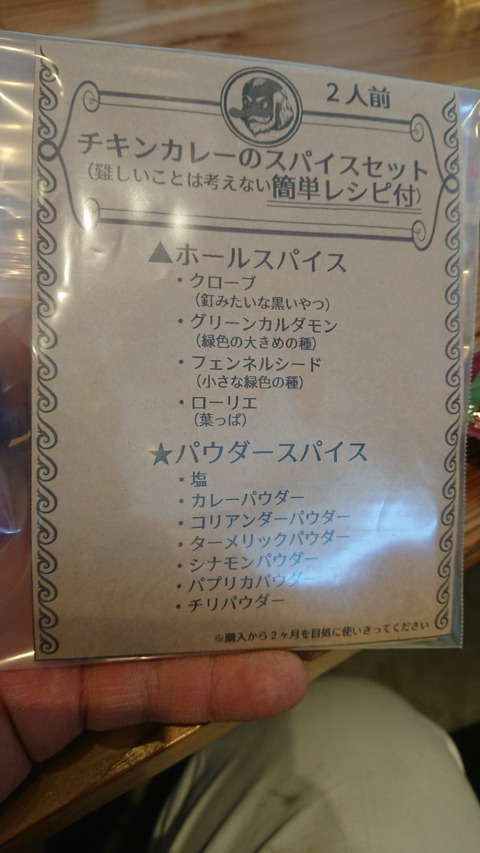 2人前
チキンカレーのスパイスセット
(難しいことは考えない簡単レシピ付)
▲ホールスパイス
・クローブ
(釘みたいな黒いやつ)
・グリーンカルダモン
(緑色の大きめの種)
・フェンネルシード
(小さな緑色の種)
・ローリエ
(葉っぱ)
★パウダースパイス
・塩
・カレーパウダー
・コリアンダーパウダー
・ターメリックパウダー
・シナモンパウダー
・パプリカパウダー
・チリパウダー
※購入から2ヶ月を目処に使いきってください